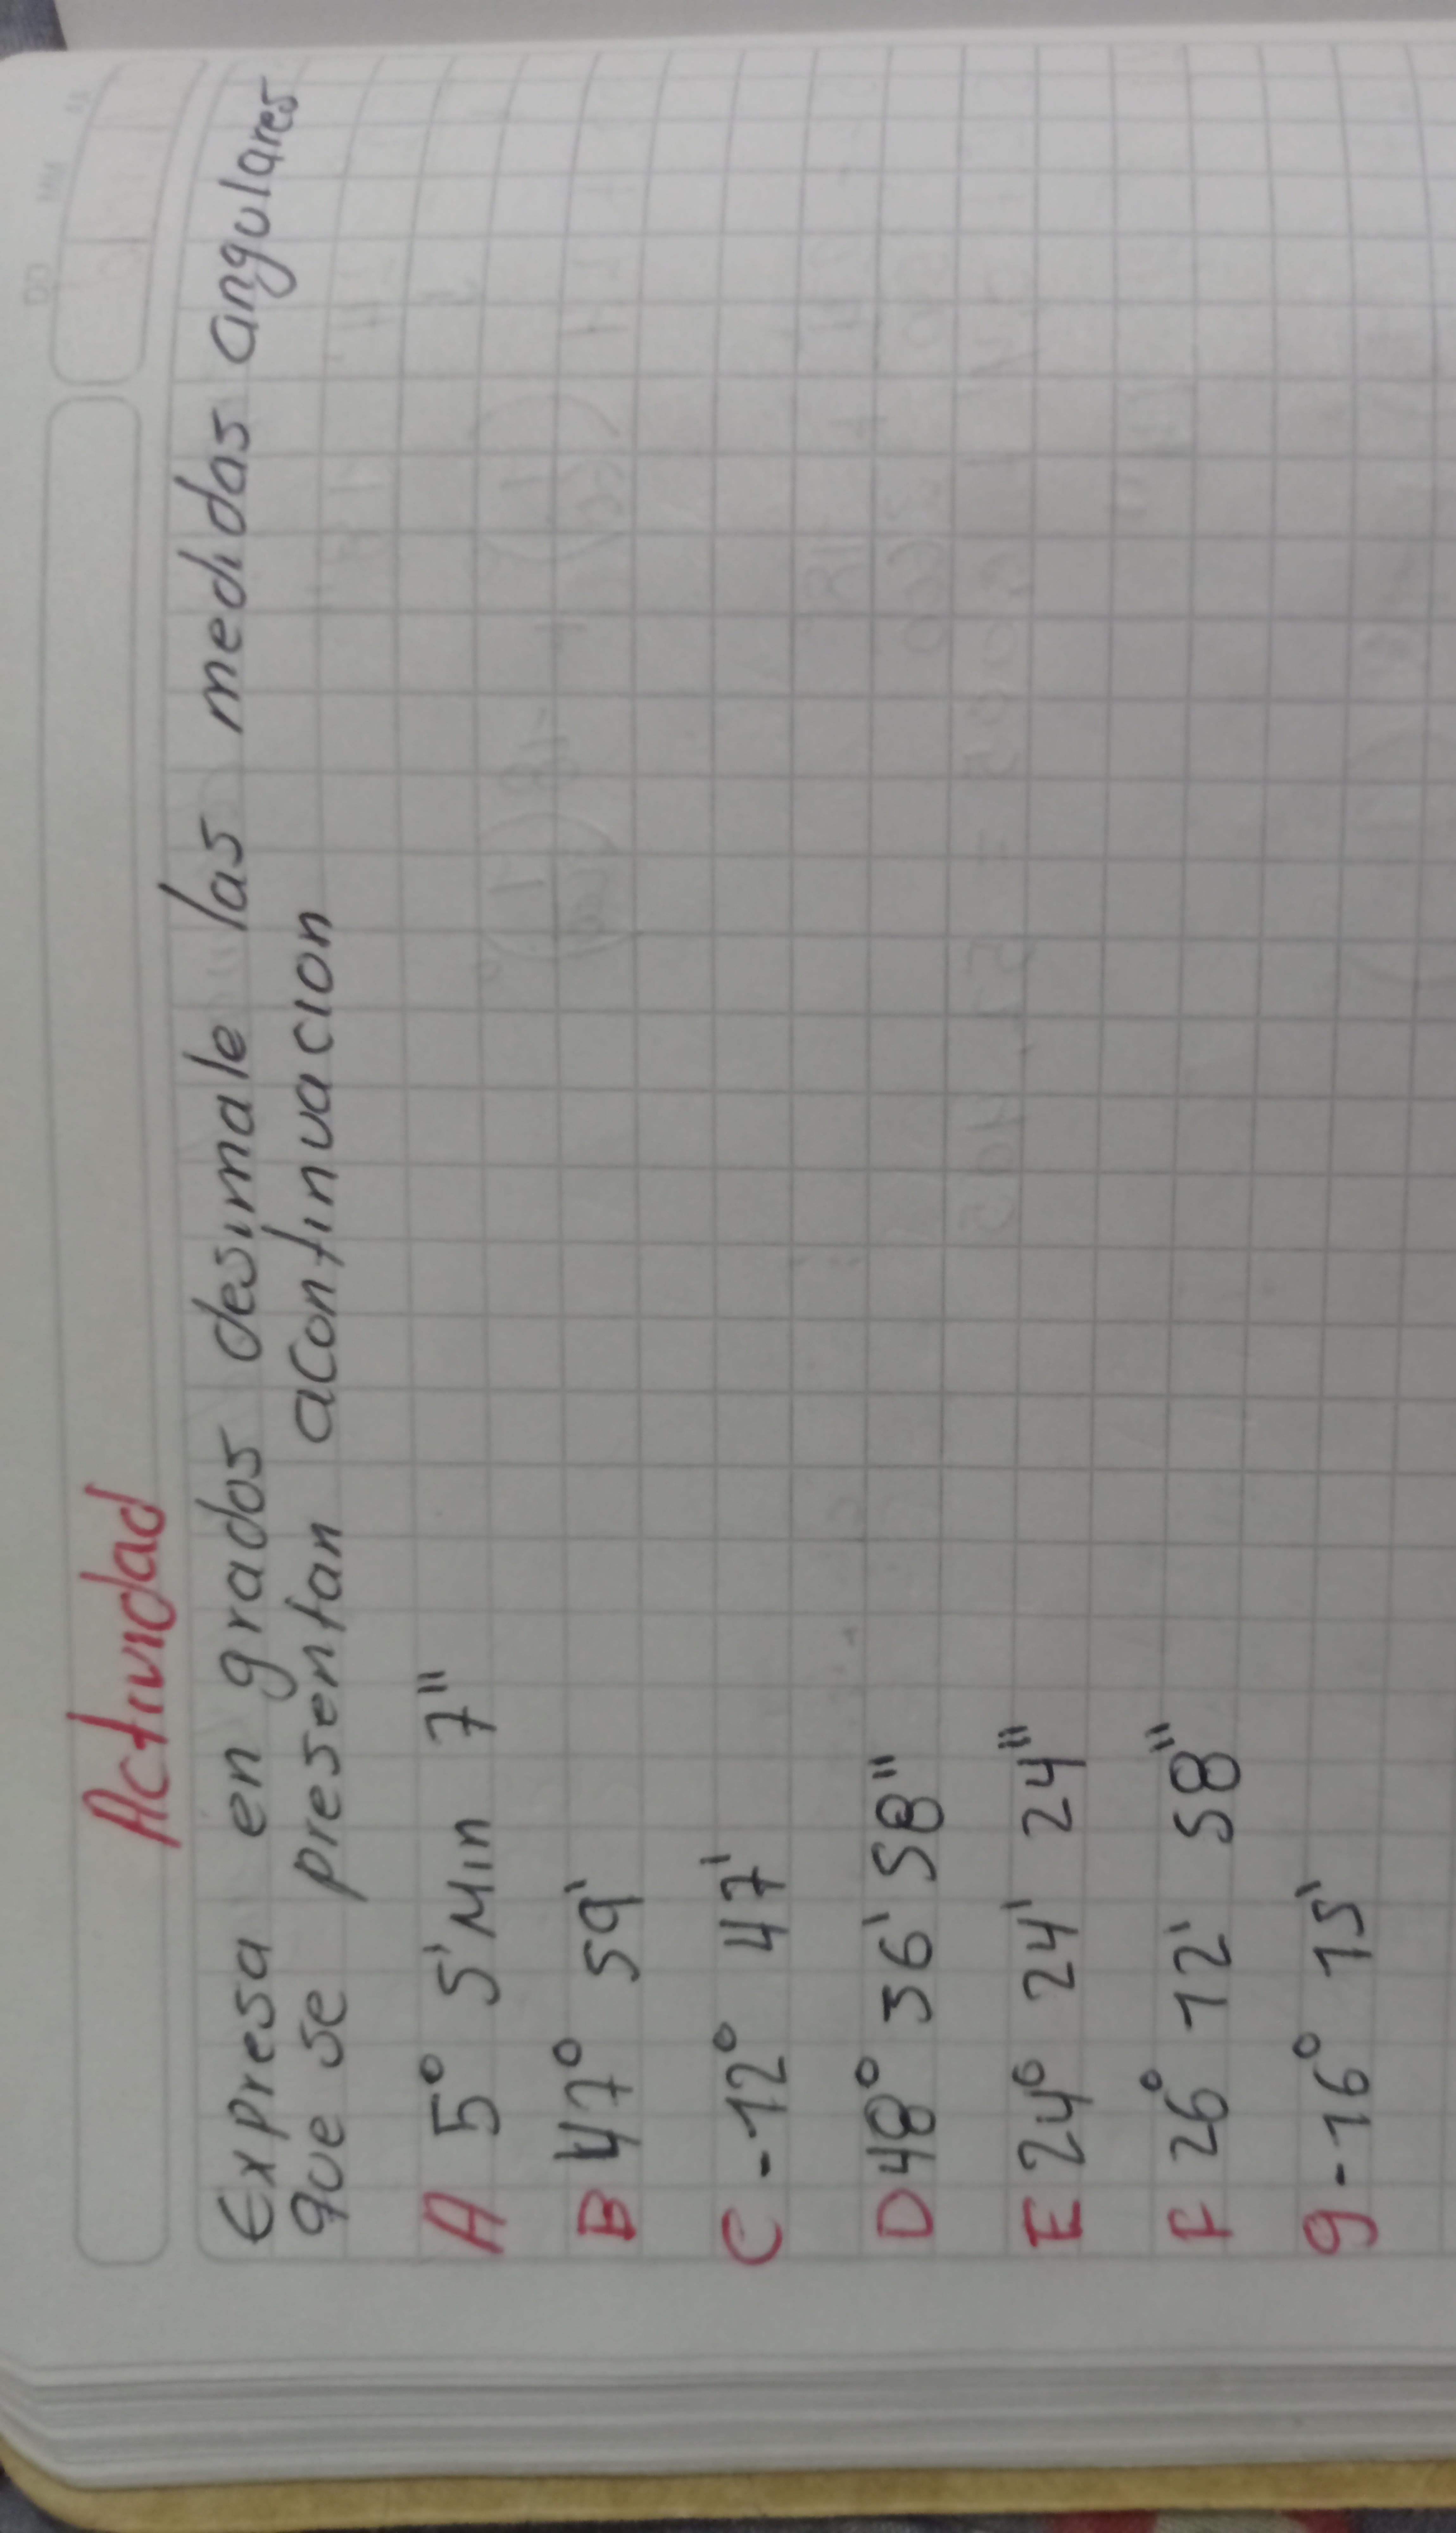 Actividad
Expresa en grados desimale las medidas angulares
que se presentan acontinuacion
A 5° 5' Min 7"
B 47° 59'
C -12° 47'
D 48° 36' 58"
E 24° 24' 24"
F 26° 12' 58"
g -16° 15'